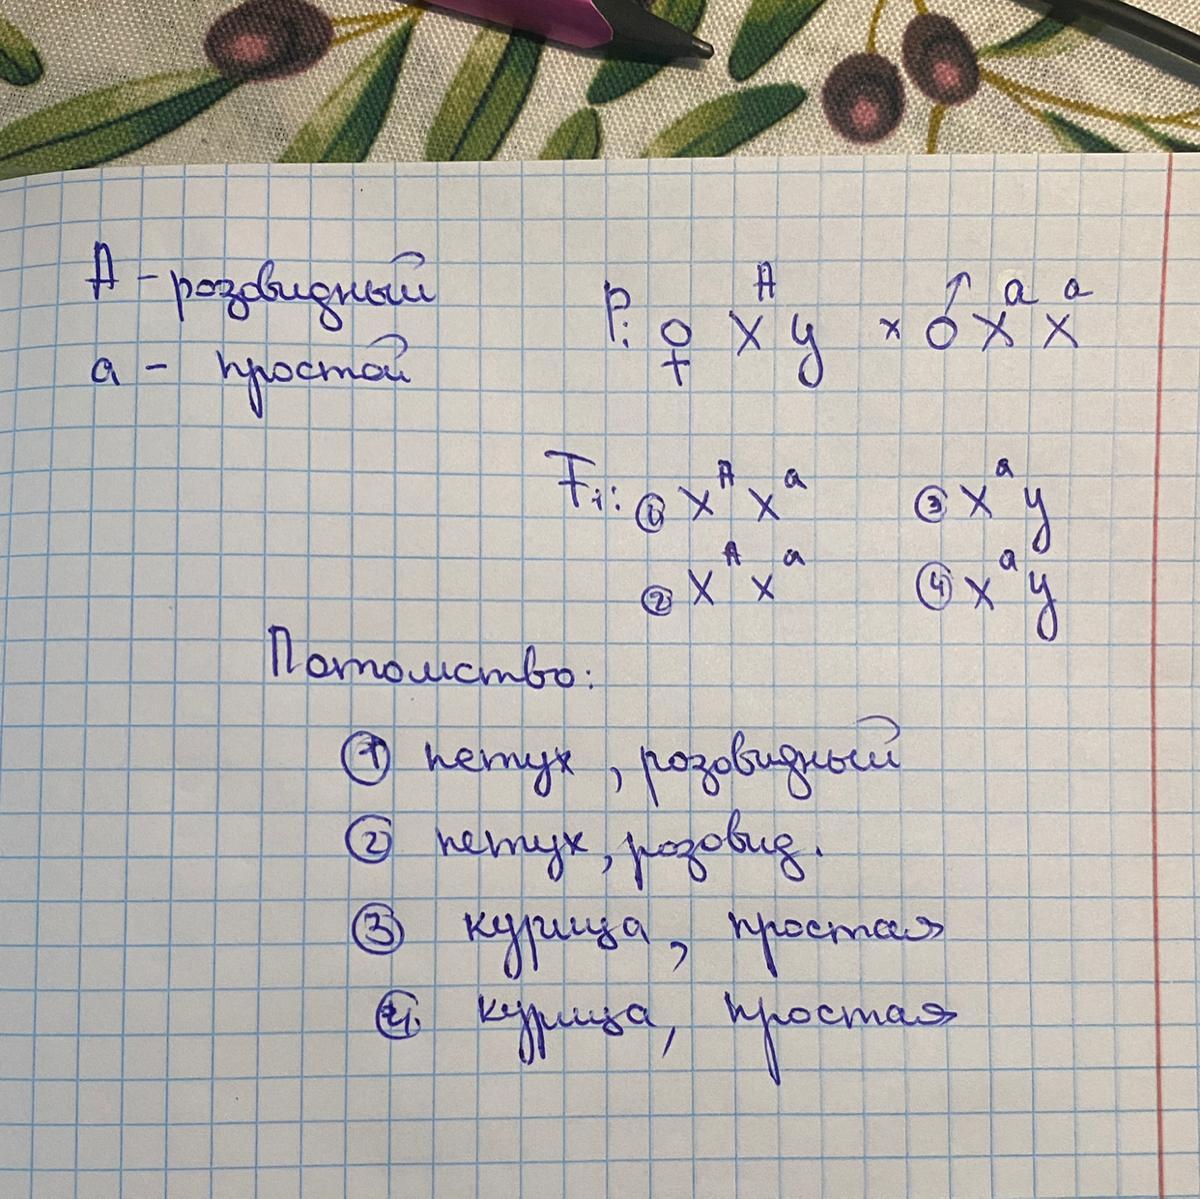 A - розовидный
а - простой
P: ♀ X^A y x ♂ X^a X^a
F₁: ① X^A X^a ③ X^a y
② X^A X^a ④ X^a y
Потомство:
① петух, розовидный
② петух, розовид.
③ курица, простая
④ курица, простая